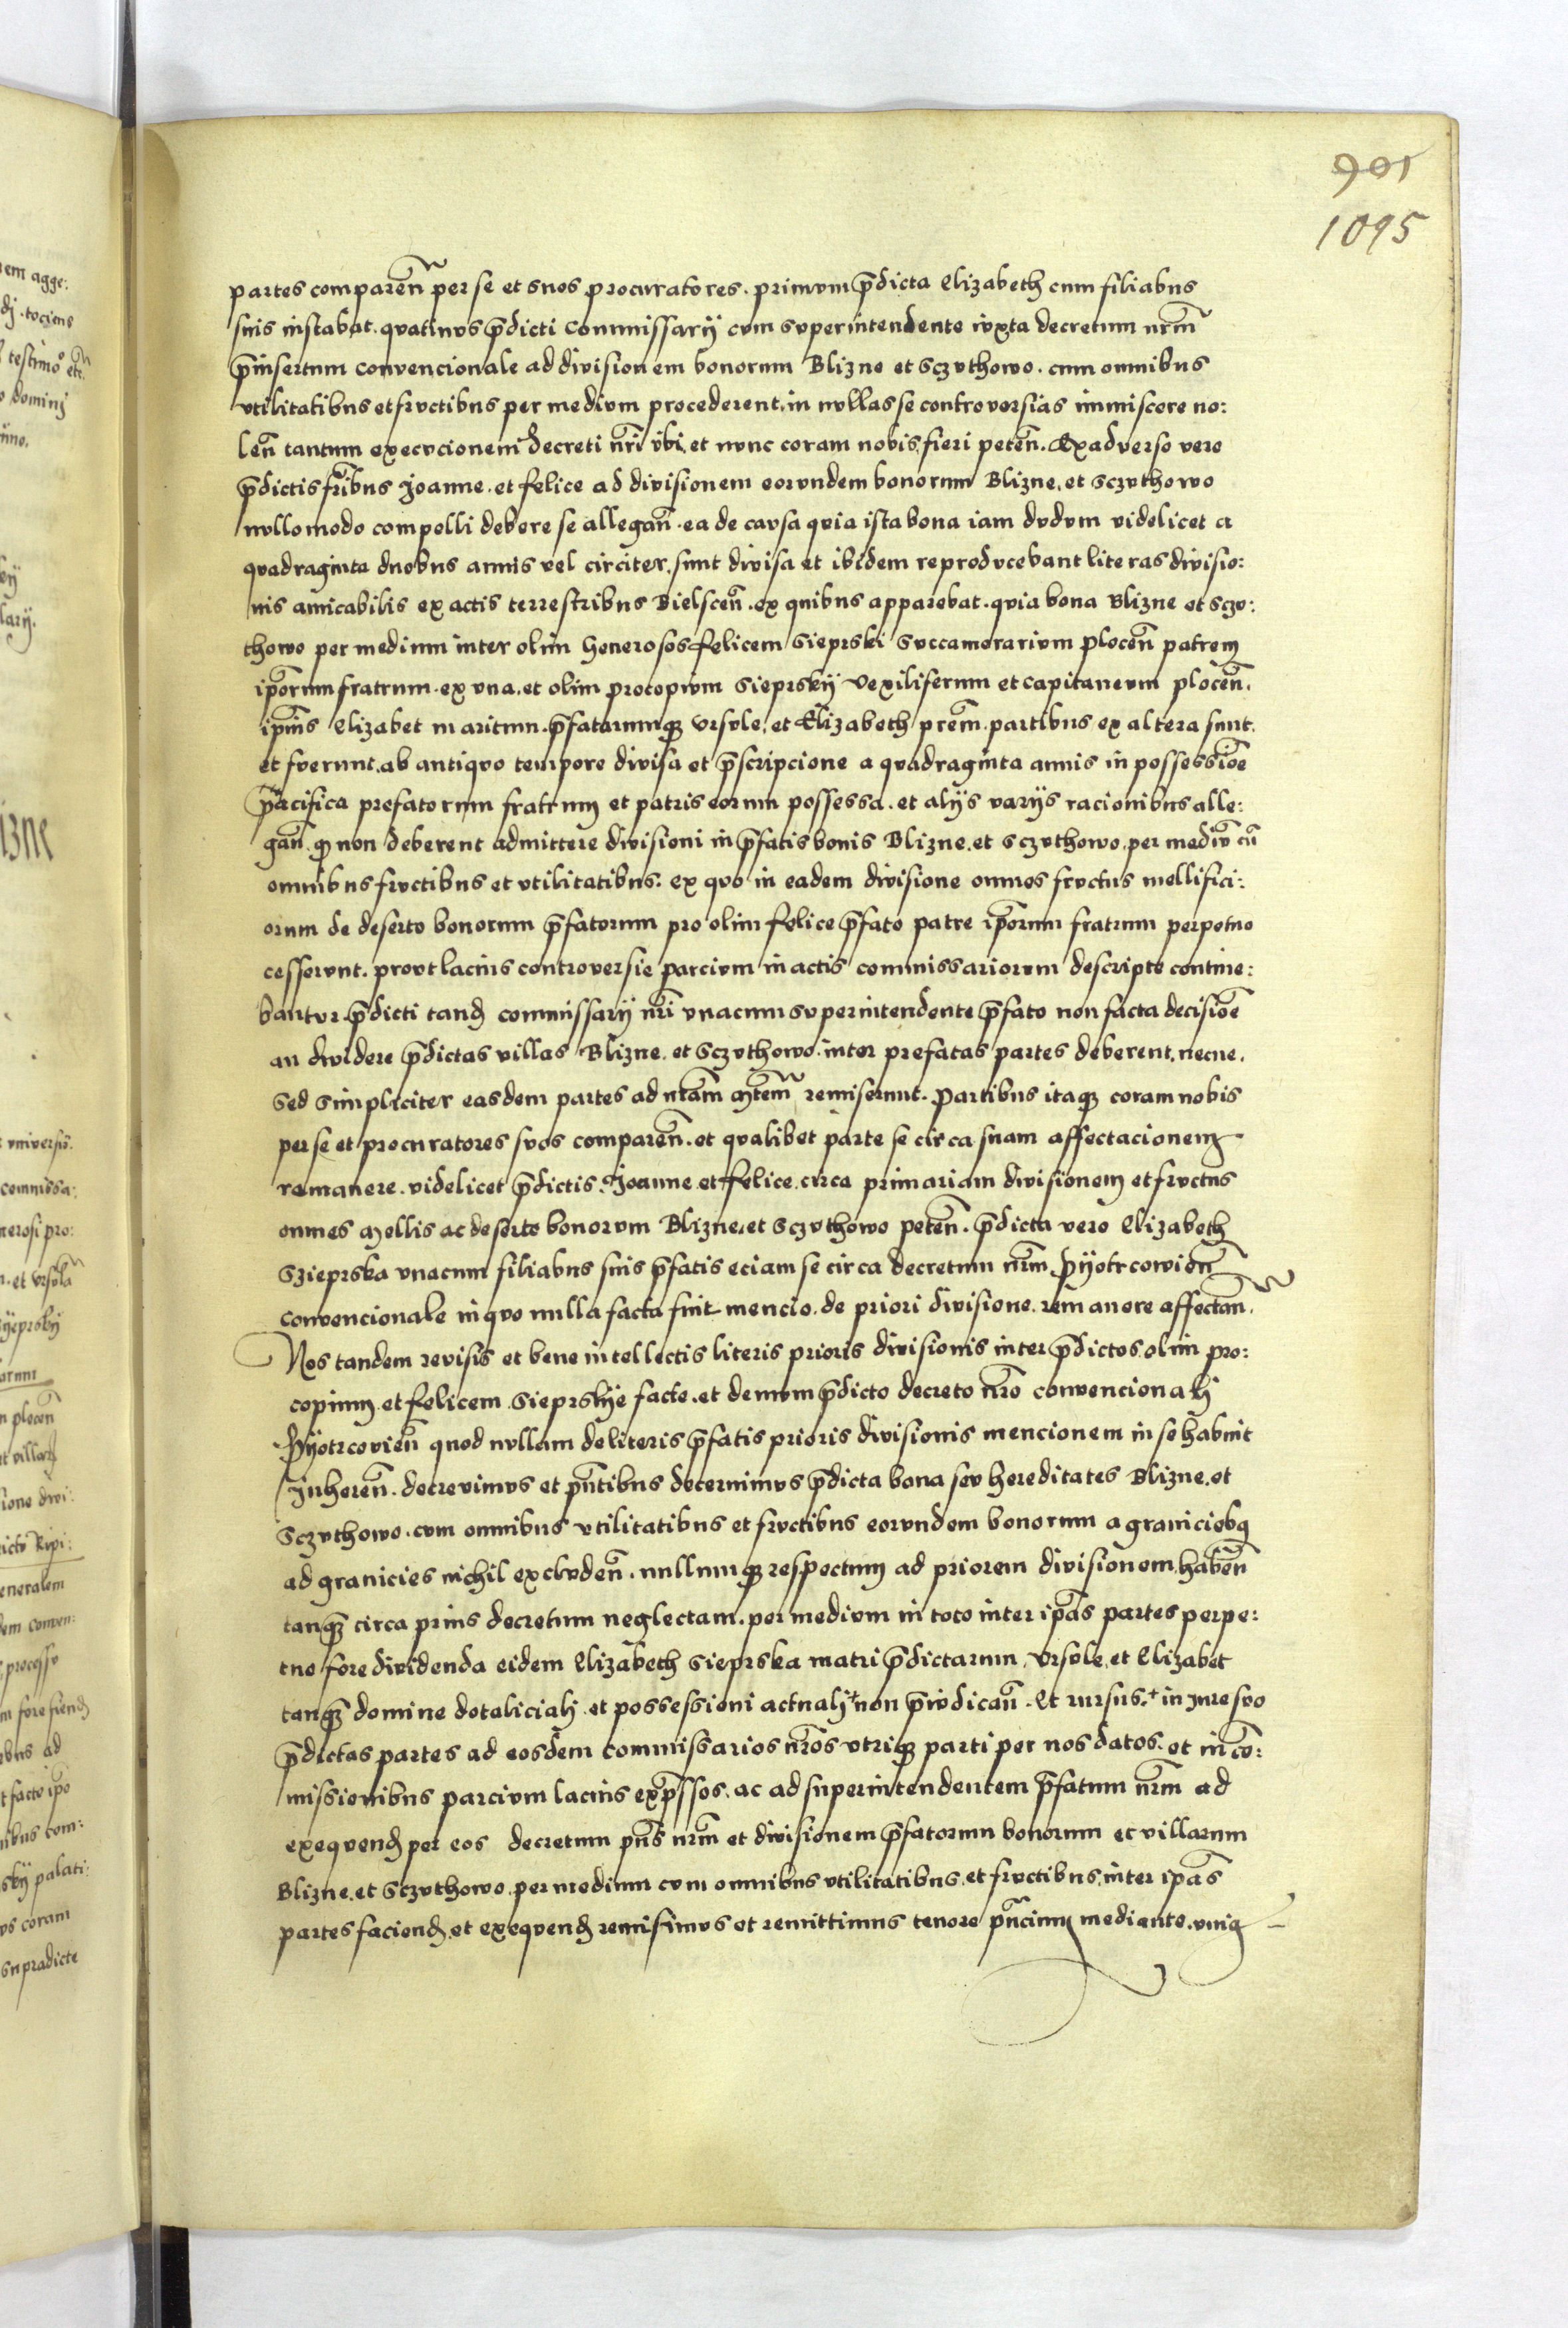 901
1095
partes comparen̄ per se et suos procuratores. primum p̄dicta Elizabeth cum filiabus
suis instabat. quatinus p̄dicti Commissarÿ cum superintendente iuxta decretum nr̄m
p̄insertum convencionale ad divisionem bonorum Blizne et Sczuthowo. cum omnibus
utilitatibus et fructibus per medium procederent. in nullas se controversias immiscere no:
len̄ tantum execucionem decreti nr̄i ibi. et nunc coram nobis fieri peten̄. Ex adverso vero
p̄dictis fr̄ibus Joanne. et felice ad divisionem eorundem bonorum Blizne. et Sczuthowo
nullomodo compelli debere se allegan̄. ea de causa quia ista bona iam dudum videlicet a
quadraginta duobus annis vel circiter. sunt divisa et ibidem reproducebant literas divisio:
nis amicabilis ex actis terrestribus Bielscen̄. ex quibus apparebat. quia bona Blizne et Sczu:
thowo per medium inter olim Generosos felicem Sieprski Succamerarium Plocen̄ patrem
ip̄orum fratrum. ex una. et olim Procopium Sieprskÿ Vexiliferum et Capitaneum plocen̄.
ip̄ius Elizabet maritum. p̄fatarumq̨ Ursule. et Elizabeth pr̄em. partibus ex altera sunt.
et fuerunt. ab antiquo tempore divisa et p̄scripcione a quadraginta annis in possessiōe
pacifica prefatorum fratrum et patris eorum possessa. et alÿs varÿs racionibus alle:
gan̄. q̨ non deberent admittere divisioni in p̄fatis bonis Blizne. et Sczuthowo. per mediū cū
omnibus fructibus et utilitatibus. ex quo in eadem divisione omnes fructus mellifici:
orum de deserto bonorum p̄fatorum pro olim felice p̄fato patre ip̄orum fratrum perpetuo
cesserunt. prout lacius controversie parcium in actis commissariorum descripte contine:
bantur. p̄dicti tand̨ commissarÿ nr̄i unacum superintendente p̄fato non facta decisiōe
an dividere p̄dictas villas Blizne. et Sczuthowo. inter prefatas partes deberent. necne.
sed simpliciter easdem partes ad nr̄am Mtem̄ remiserunt. Partibus itaq̨ coram nobis
per se et procuratores suos comparen̄. et qualibet parte se circa suam affectacionem
remanere. videlicet p̄dictis. Joanne et felice. circa primariam divisionem et fructus
omnes Mellis ac deserto bonorum Blizne. et Sczuthowo peten̄. p̄dicta vero Elizabeth
Szieprska unacum filiabus suis p̄fatis eciam se circa decretum nr̄m
convencionale in quo nulla facta fuit mencio. de priori divisione. remanere affectan̄.
Nos tandem revisis et bene intellectis literis prioris divisionis inter p̄dictos olim Pro:
copium et felicem Sieprskÿe facte. et demum p̄dicto decreto nr̄o convencionali
Pÿotrcovien̄ quod nullam de literis p̄fatis prioris divisionis mencionem in se habuit
Inheren̄. decrevimus et pn̄tibus decernimus p̄dicta bona seu hereditates Blizne. et
Sczuthowo. cum omnibus utilitatibus et fructibus eorundem bonorum a graniciebq̨
ad granicies nichil excluden̄. nullumq̨ respectum ad priorem divisionem haben̄
tanq̨ circa prius decretum neglectam. per medium in toto inter ip̄as partes perpe:
tuo fore dividenda eidem Elizabeth Sieprska matri p̄dictarum. Ursule. et Elizabet
tanq̨ domine dotaliciali. et possessioni actuali + non p̄iudican̄. Et rursus. + in iure suo
p̄dictas partes ad eosdem commissarios nr̄os utriq̨ parti per nos datos. et in cō:
missionibus parcium lacius exp̄ssos. ac ad superintendentem p̄fatum nr̄m ad
exequend̨ per eos decretum pn̄s nr̄m et divisionem p̄fatorum bonorum et villarum
Blizne. et Sczuthowo. per medium cum omnibus utilitatibus. et fructibus. inter ip̄as
partes faciend̨. et exequend̨ remisimus et remittimus tenore pn̄cium mediante.